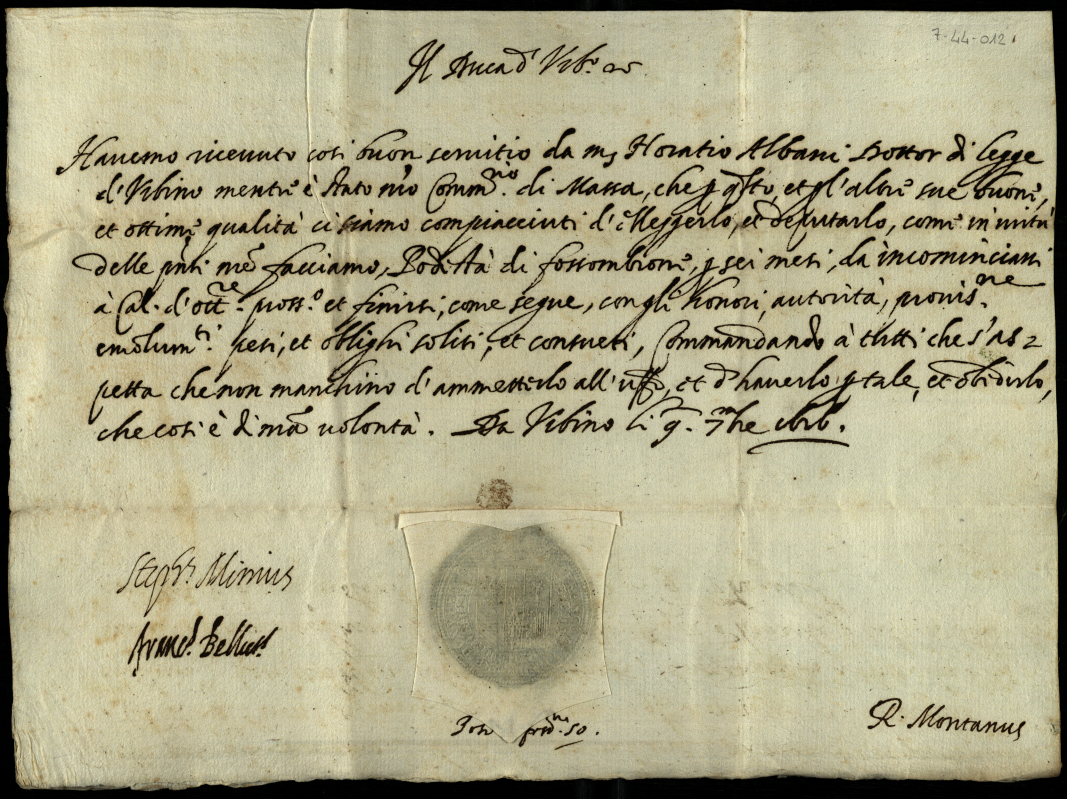 7-44-012
Il Duca d' Urb.º
Havemo ricevuto così buon servitio da ms Horatio Albani Dottor di legge
d'Urbino mentre è stato nro Comm.rio di Massa, che p qsto, et p l'altre sue buone,
et ottime qualità ci siamo compiacciuti d'elleggerlo, et deputarlo, come in virtù
delle pnti nre facciamo, Podestà di fossombrone, p sei mesi, da incominciarsi
à Cal. d'ott.re pross.º et finirsi, come segue, con gli honori, autorità, provis.ne
emolum.ti pesi, et oblighi soliti, et consueti, Commandando à tutti che s'as=
petta che non manchino d'ammetterlo all'uff.o, et d'haverlo p tale, et obedirlo,
che così è di nra volontà. Da Urbino li 9. 7mbre
Steph.s Minius
Franc.s
R. Montanus